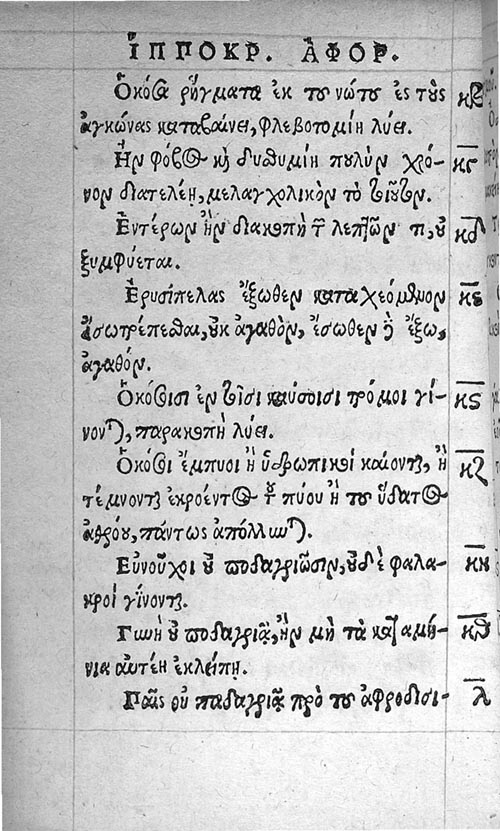 ἹΠΠΟΚΡ. ἈΦΟΡ.
Ὁκόσα ῥήγματα ἐκ τοῦ νώτου ἐς τοὺς κβ
ἀγκῶνας καταβαίνει, φλεβοτομίη λύει.
Ἢν φόβος καὶ δυσθυμίη πουλὺν χρό- κγ
νον διατελέῃ, μελαγχολικὸν τὸ τοιοῦτον.
Ἐντέρων ἢν διακοπῇ τῶν λεπτῶν τι, οὐ κδ
ξυμφύεται.
Ἐρυσίπελας ἔξωθεν καταχεόμενον κε
ἔσω τρέπεσθαι, οὐκ ἀγαθὸν, ἔσωθεν δὲ ἔξω,
ἀγαθόν.
Ὁκόσοισι ἐν τοῖσι καύσοισι τρόμοι γί- κϛ
νονται, παρακοπὴ λύει.
Ὁκόσοι ἔμπυοι ἢ ὑδρωπικοὶ καίονται, ἢ κζ
τέμνονται ἐκρυέντος τοῦ πύου ἢ τοῦ ὕδατος
ἀθρόου, πάντως ἀπόλλυνται.
Εὐνοῦχοι οὐ ποδαγριῶσιν, οὐδὲ φαλα- κη
κροὶ γίνονται.
Γυνὴ οὐ ποδαγριᾷ, ἢν μὴ τὰ καταμή- κθ
νια αὐτέῃ ἐκλείπῃ.
Παῖς οὐ ποδαγριᾷ πρὸ τοῦ ἀφροδισι- λ